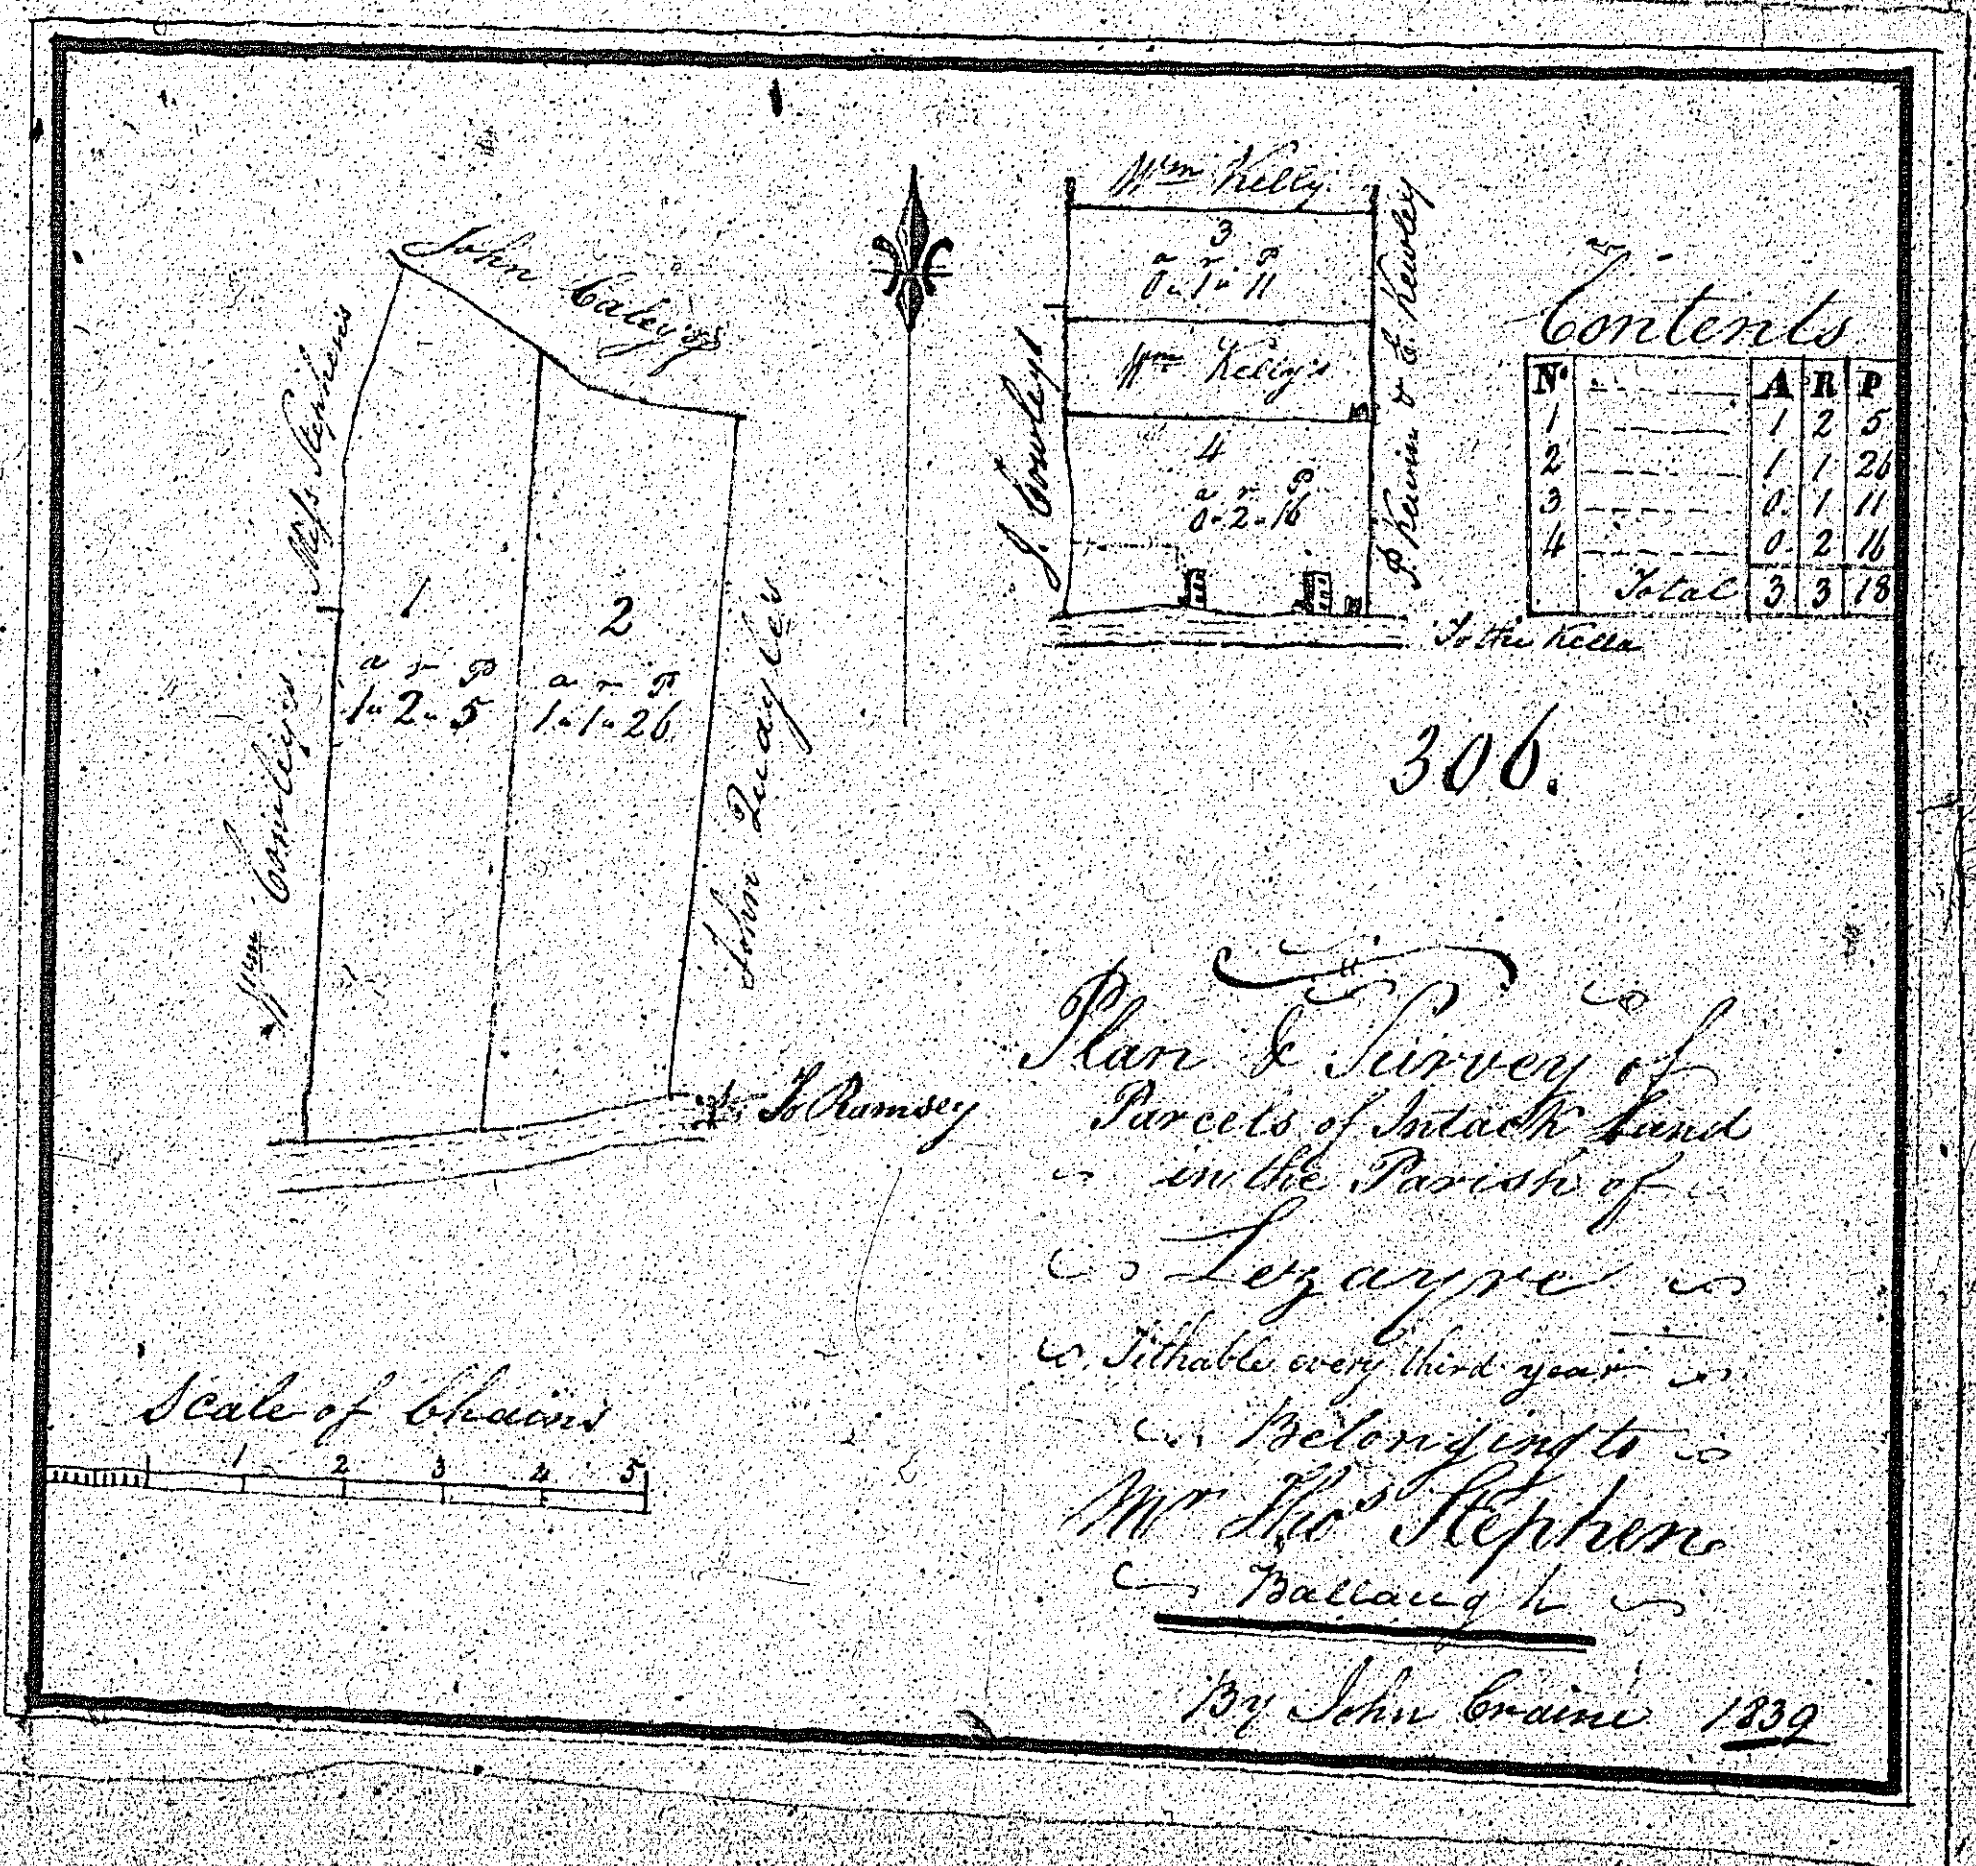 John Caley's
Mess Stephens
Wm Cowley's
John Quayle's
1
a r P
1 " 2 " 5
2
a r P
1 " 1 " 26
To Ramsey
Wm Kelly
3
a r P
0 " 1 " 11
Wm Kelly's
4
a r P
0 " 2 " 16
J. Cowley's
P. Kewin & E. Kewley
To the Kella
Contents
No A R P
1 1 2 5
2 1 1 26
3 0 1 11
4 0 2 16
Total 3 3 18
306.
Plan & Survey of
Parcels of Intack Land
in the Parish of
Lezayre
Tithable every third year
Belonging to
Mr Thos Stephen
Ballaugh
By John Craine 1839
Scale of Chains
1 2 3 4 5